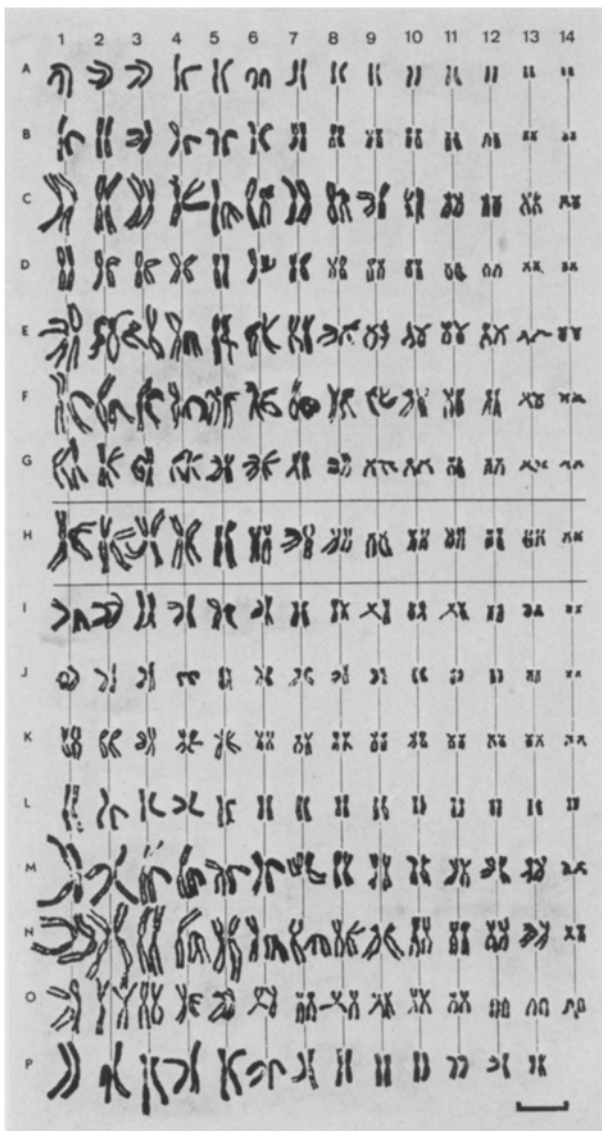 1 2 3 4 5 6 7 8 9 10 11 12 13 14
A
B
C
D
E
F
G
H
I
J
K
L
M
N
O
P